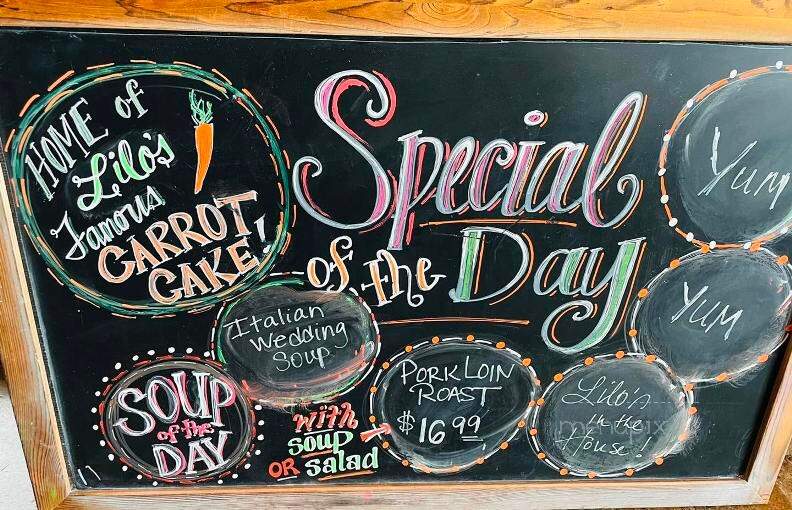 HOME of
Lilo's
Famous
CARROT
CAKE!
Special
of the Day
Yum
YUM
Italian
Wedding
Soup
SOUP
of the
DAY
with
soup
OR salad
PORK LOIN
ROAST
$16.99
Lilo's
in the
House!